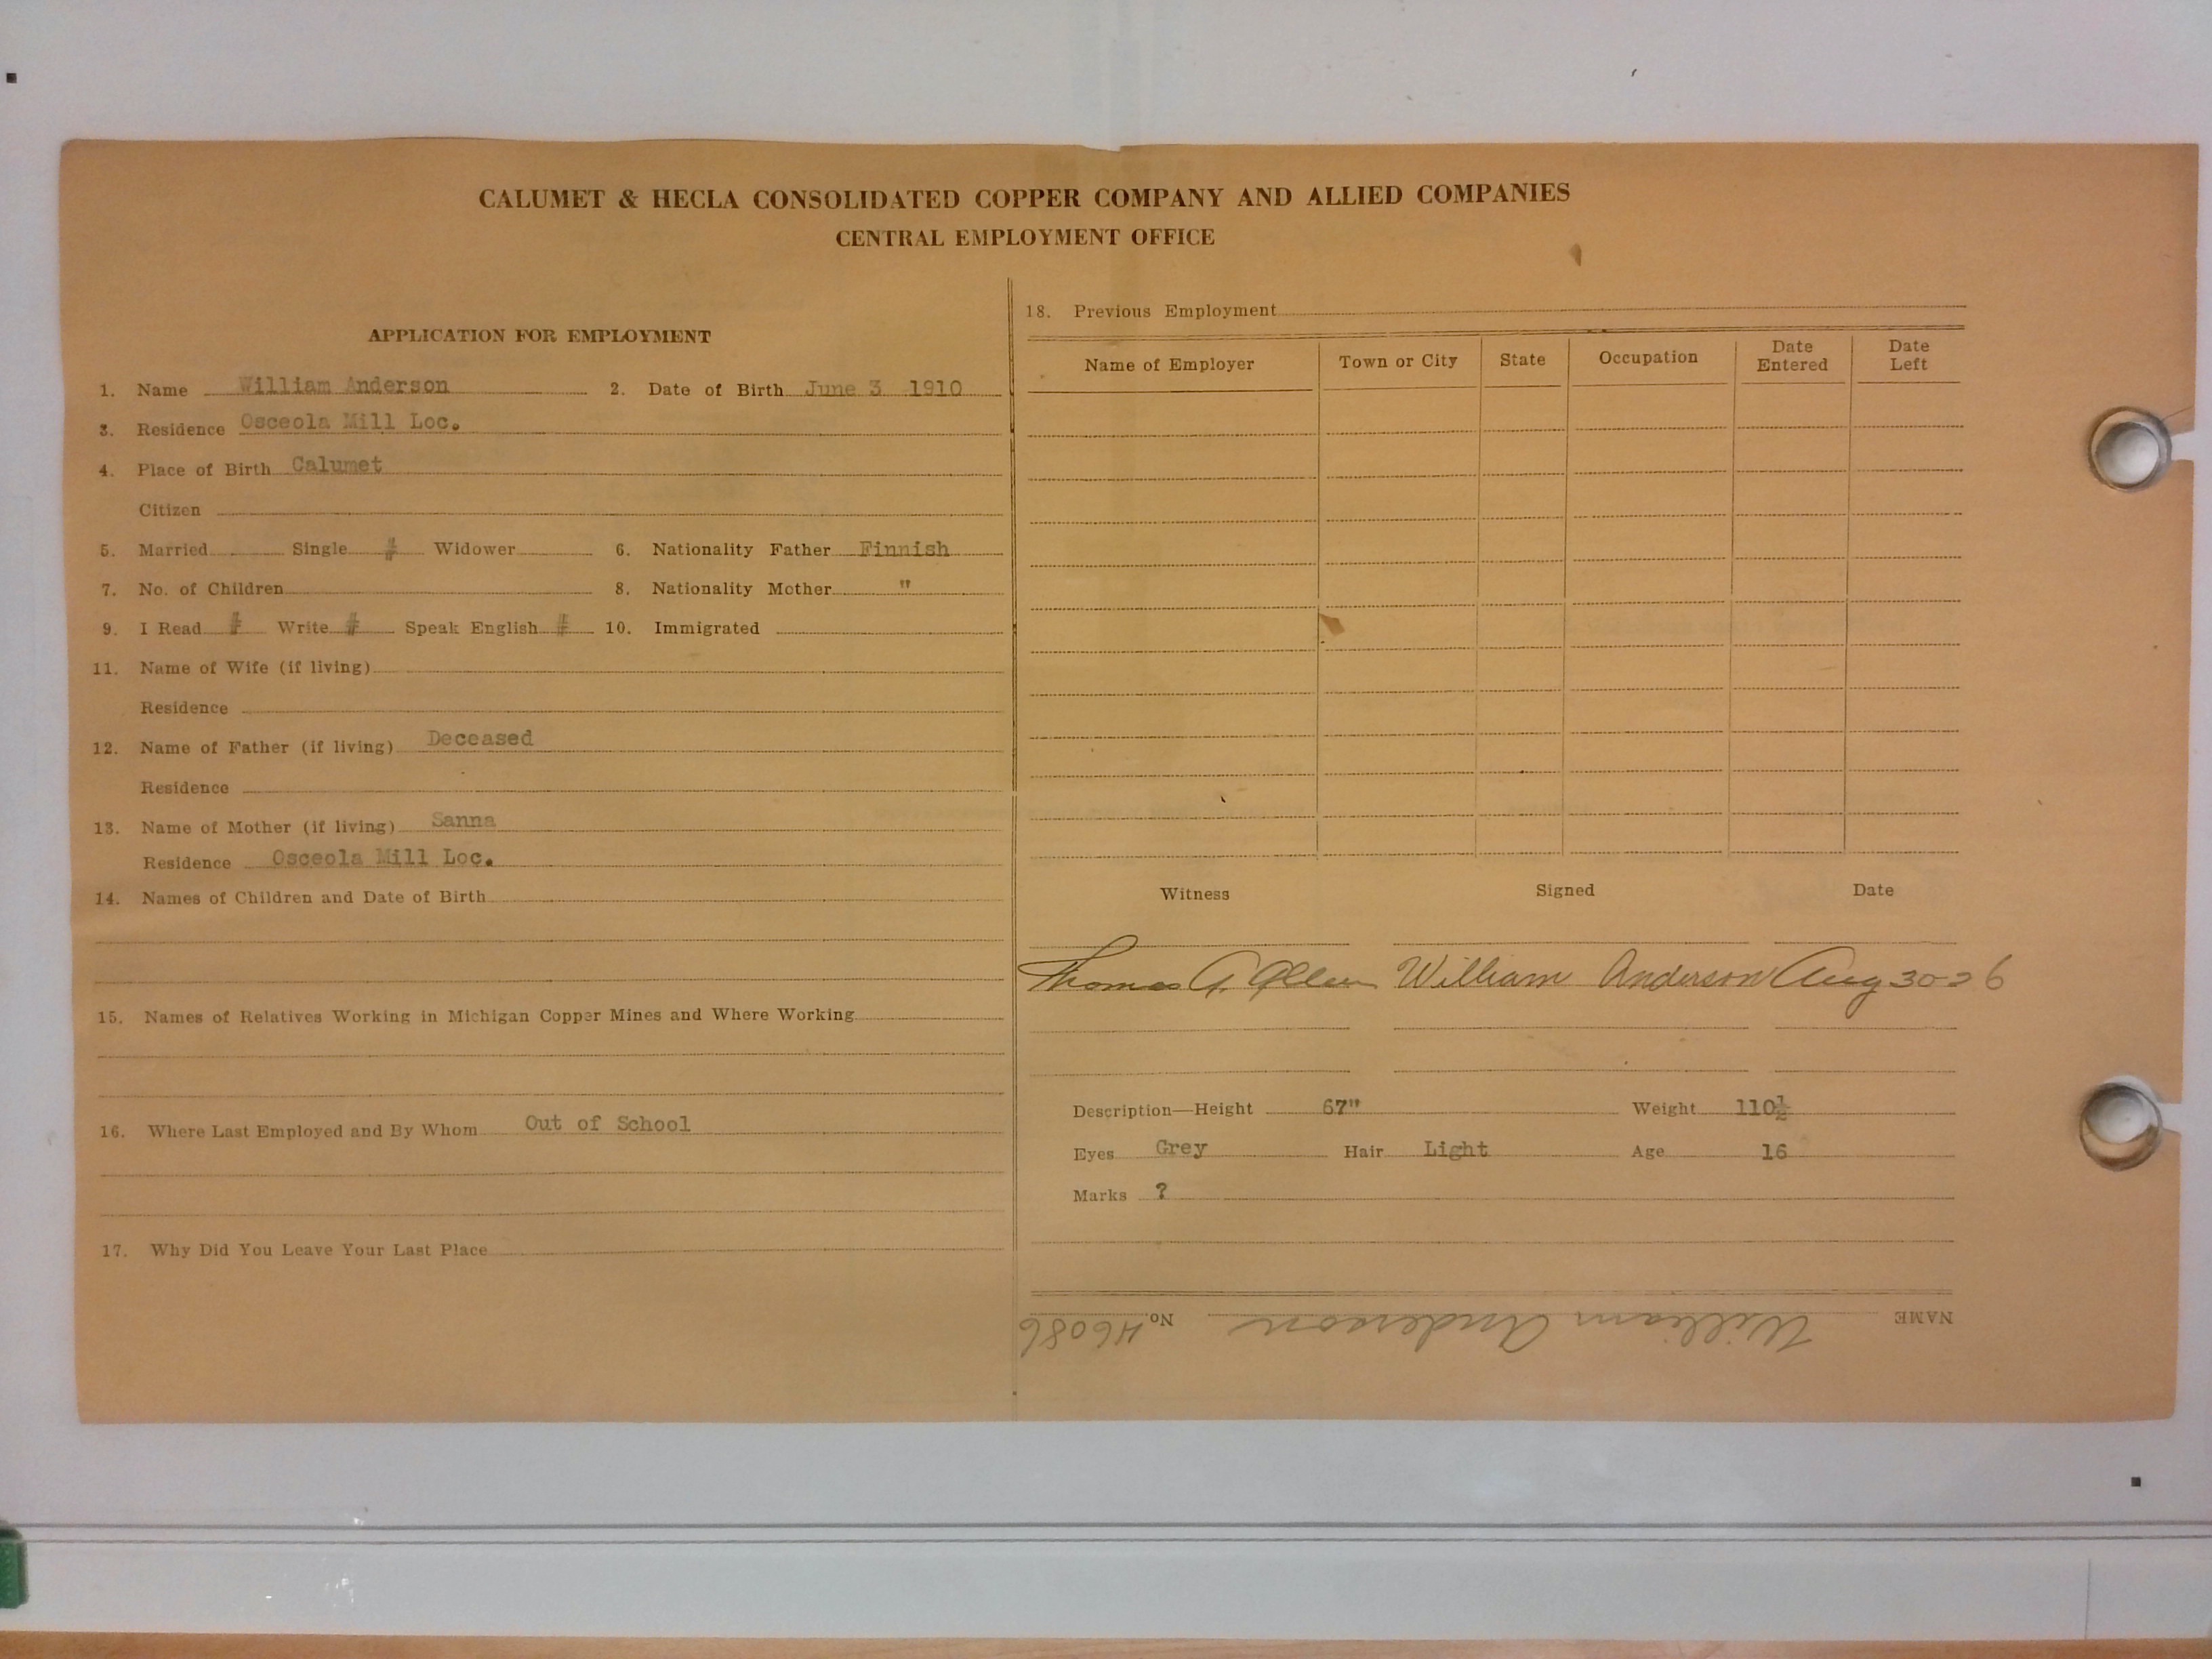 CALUMET & HECLA CONSOLIDATED COPPER COMPANY AND ALLIED COMPANIES
CENTRAL EMPLOYMENT OFFICE
APPLICATION FOR EMPLOYMENT
1. Name William Anderson 2. Date of Birth June 3 1910
3. Residence Osceola Mill Loc.
4. Place of Birth Calumet
Citizen
5. Married Single # Widower 6. Nationality Father Finnish
7. No. of Children 8. Nationality Mother "
9. I Read # Write # Speak English # 10. Immigrated
11. Name of Wife (if living)
Residence
12. Name of Father (if living) Deceased
Residence
13. Name of Mother (if living) Sanna
Residence Osceola Mill Loc.
14. Names of Children and Date of Birth
15. Names of Relatives Working in Michigan Copper Mines and Where Working
16. Where Last Employed and By Whom Out of School
17. Why Did You Leave Your Last Place
18. Previous Employment
Name of Employer Town or City State Occupation Date Entered Date Left
Witness Signed Date
Thomas A. Allen William Anderson Aug 30-26
Description—Height 67" Weight 110½
Eyes Grey Hair Light Age 16
Marks ?
NAME William Anderson No. 46086